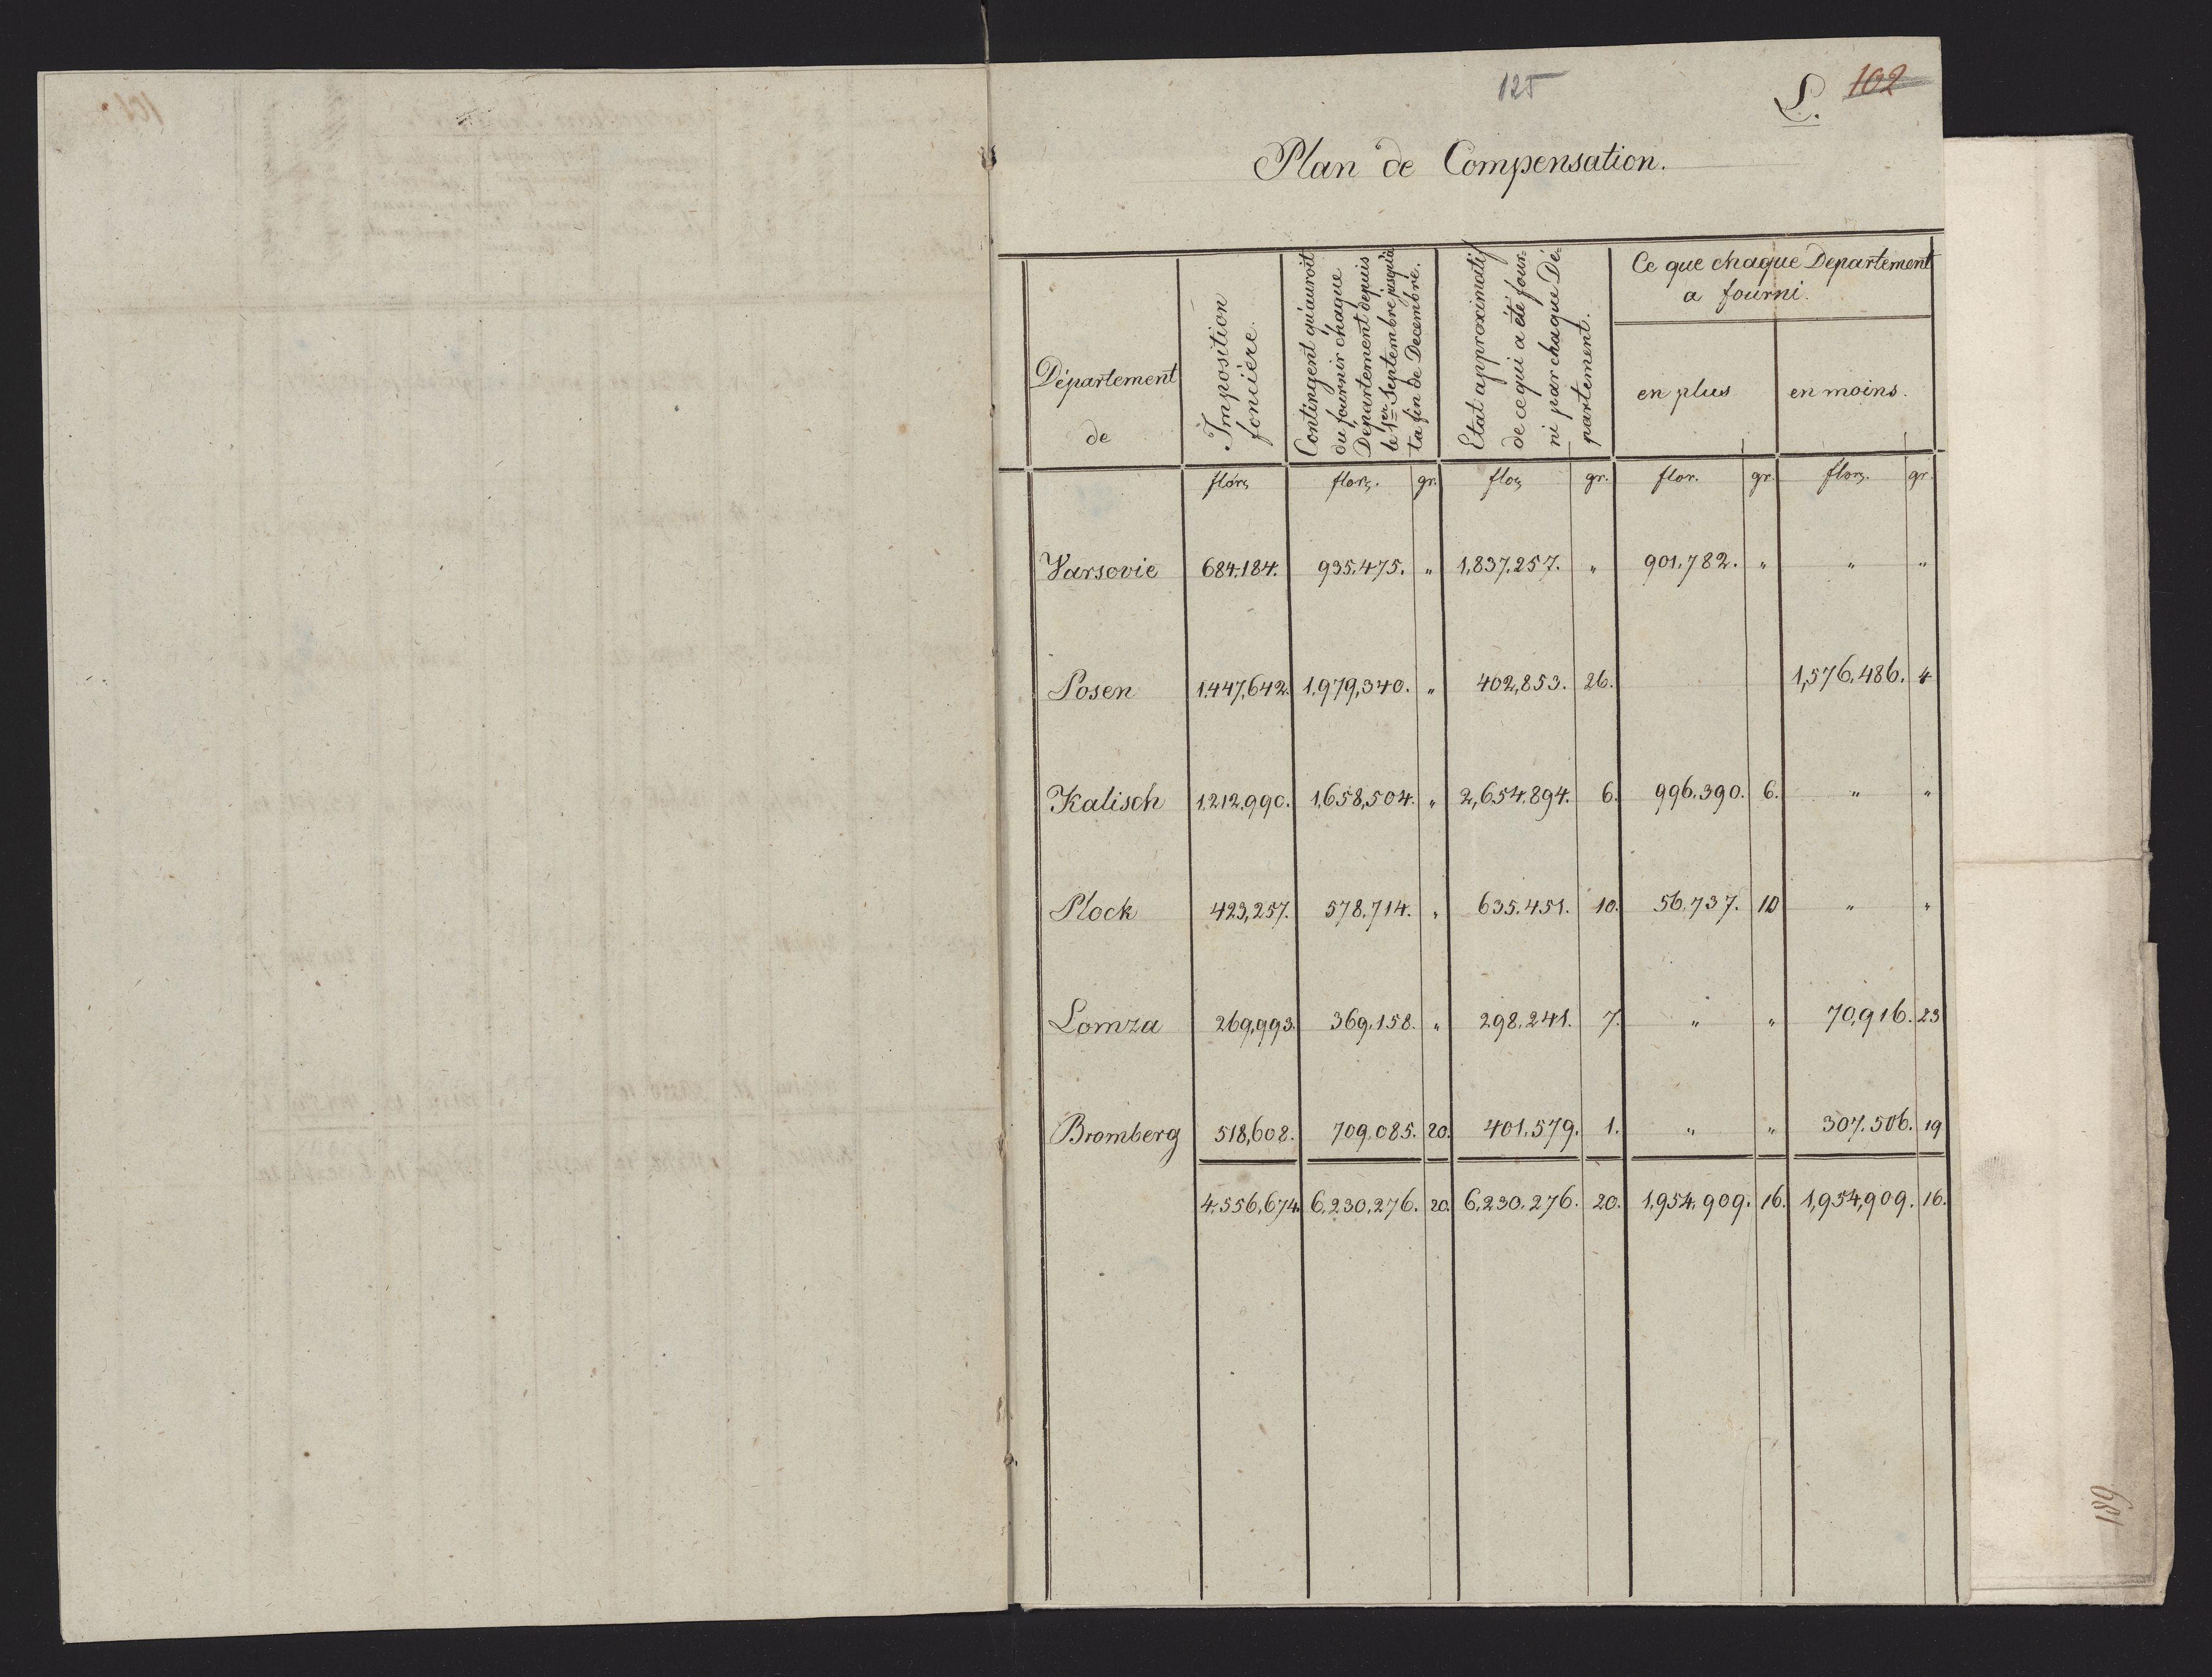 125
L.
102
Plan de Compensation.
Département de
Imposition foncière.
Contingent qu'auroit du fournir chaque Département depuis le 1er Septembre jusqu'à la fin de Decembre.
Etat approximatif de ce qui a été fourni par chaque Département.
Ce que chaque Departement a fourni.
en plus
en moins.
flor. flor. gr. flor. gr. flor. gr. flor. gr.
Varsovie 684.184. 935.475. " 1,837.257. " 901.782. " " "
Posen 1.447,642. 1,979,340. " 402,853. 26. 1,576.486. 4
Kalisch 1.212.990. 1,658,504. " 2,654.894. 6. 996.390. 6. " "
Plock 423,257. 578.714. " 635.451. 10. 56.737. 10 " "
Lomza 269,993. 369.158. " 298.241. 7. " " 70,916. 23
Bromberg 518,608. 709.085. 20. 401.579. 1. " " 307.506. 19
4.556,674. 6.230.276. 20. 6.230.276. 20. 1.954.909. 16. 1,954,909. 16.
189